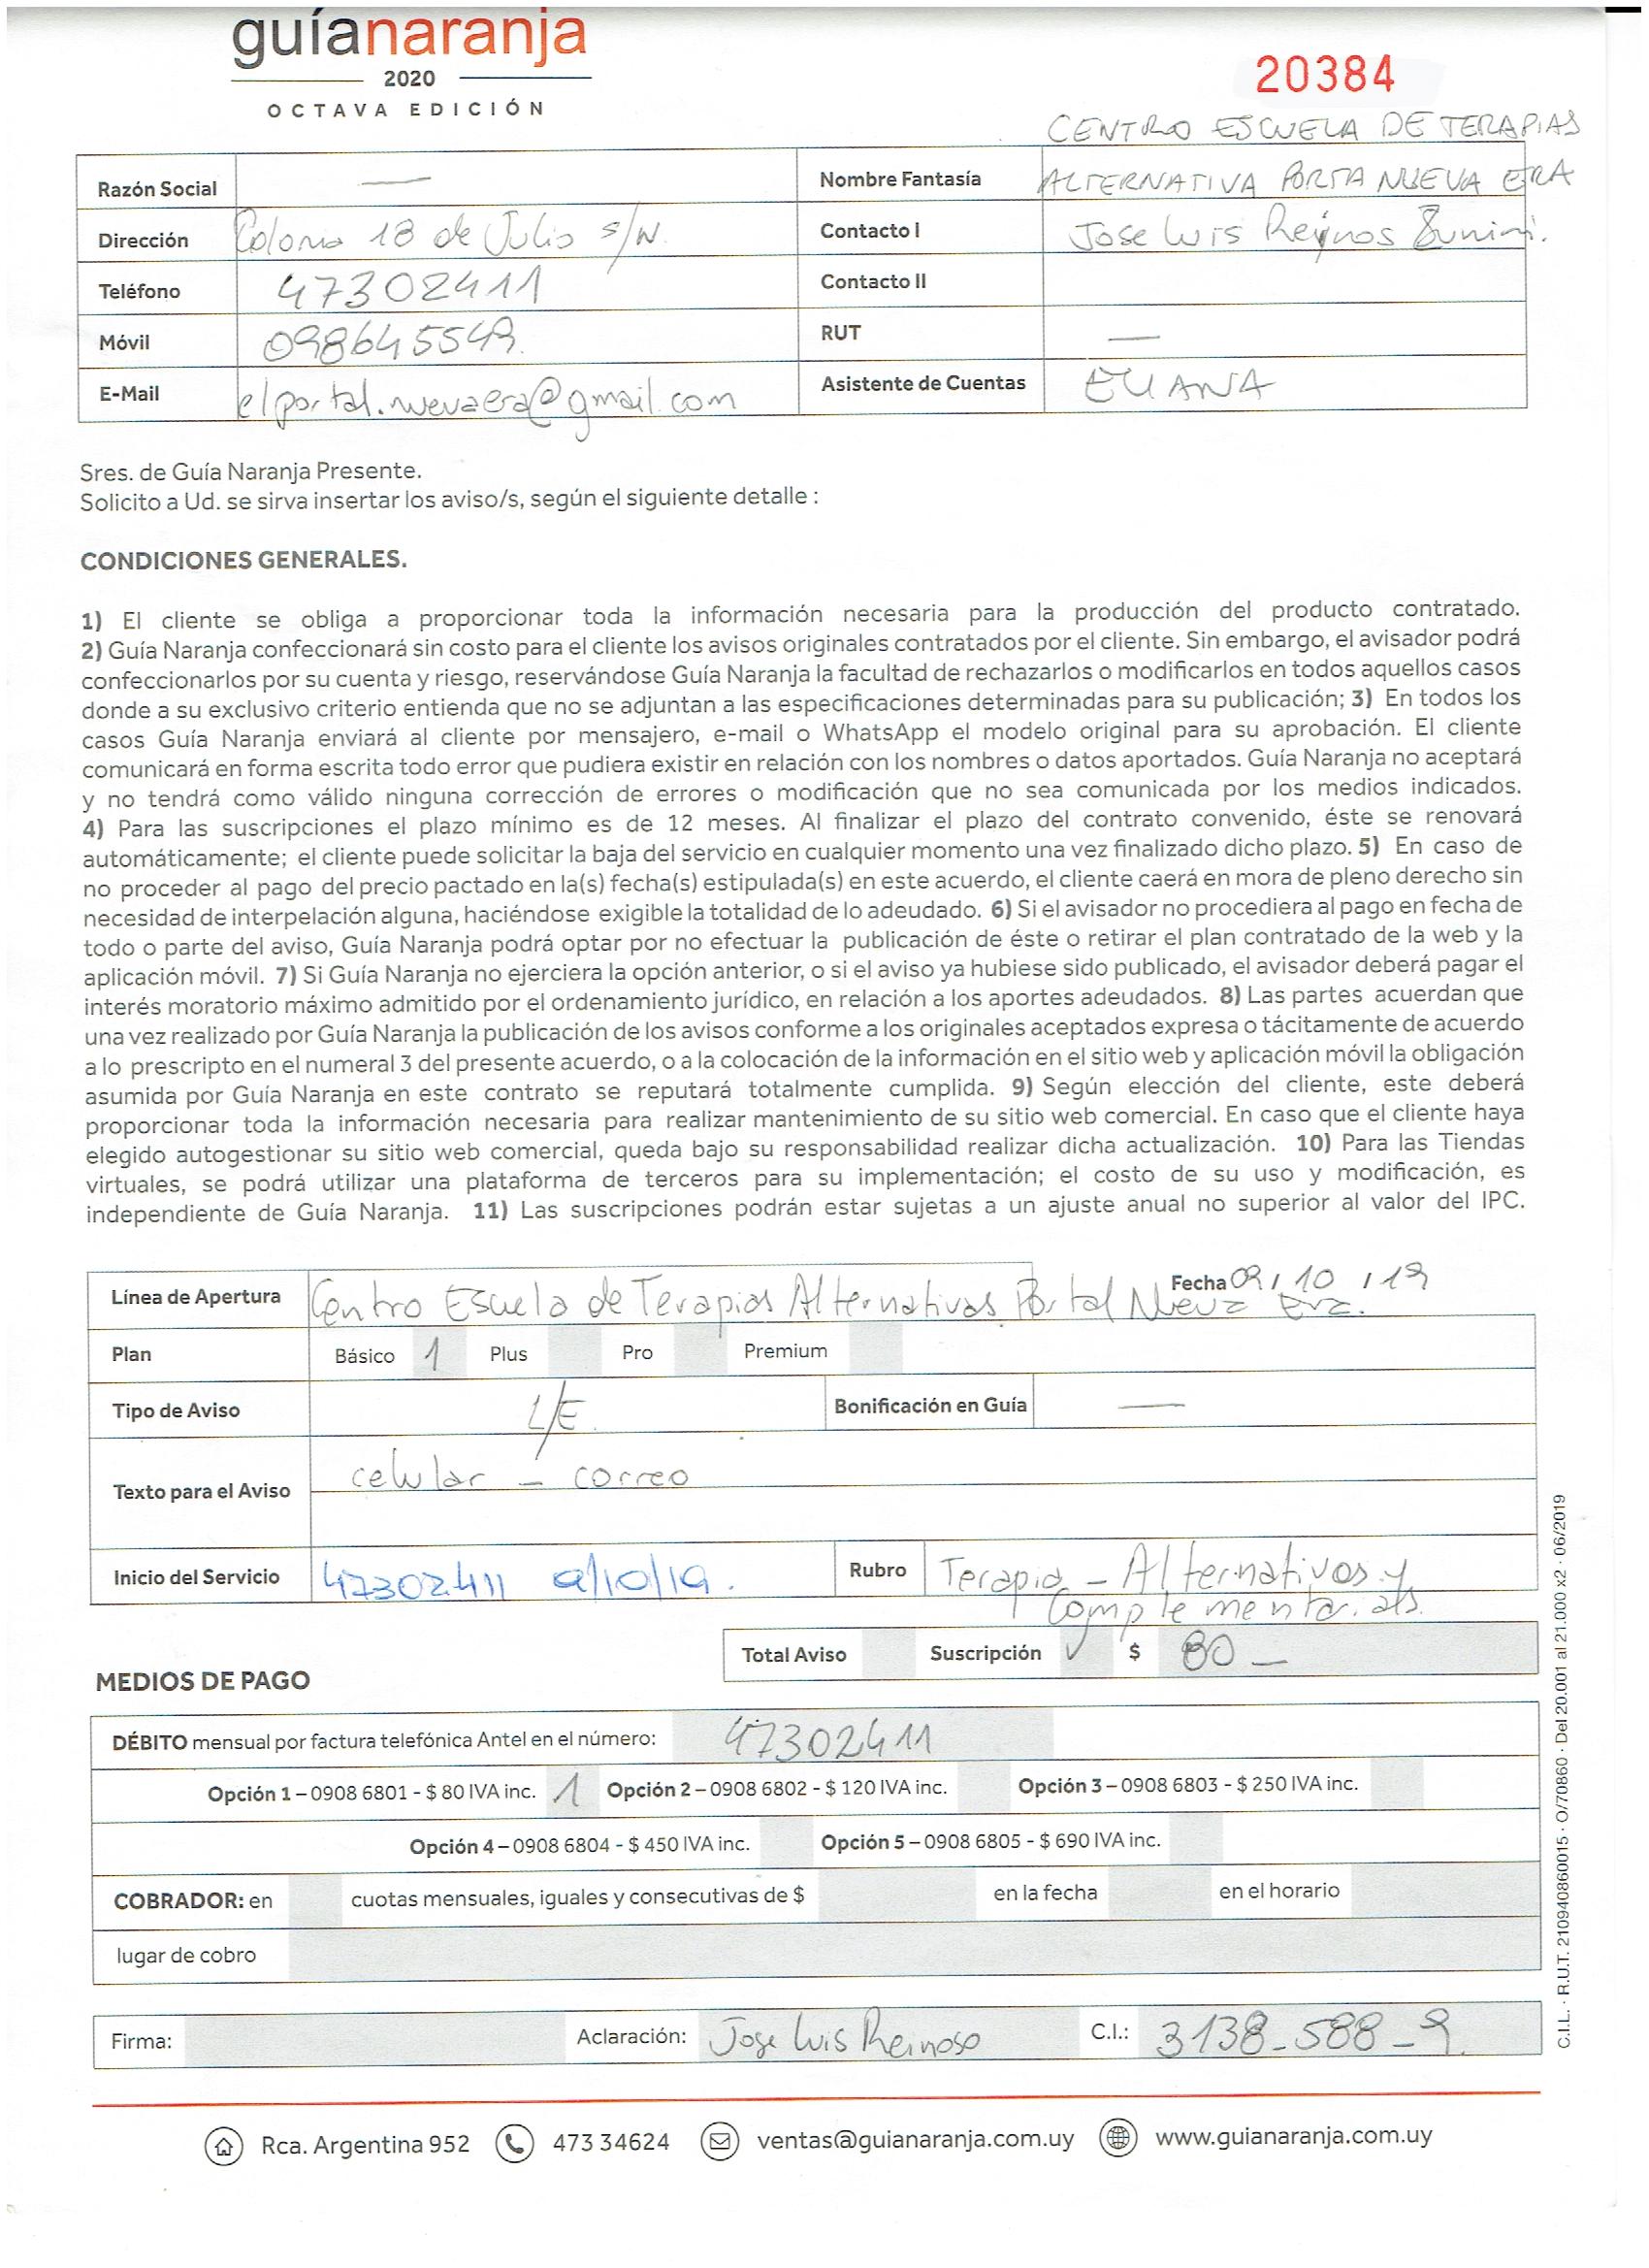 guíanaranja
2020
OCTAVA EDICIÓN
20384
CENTRO ESCUELA DE TERAPIAS
Razón Social —
Nombre Fantasía ALTERNATIVA PORTA NUEVA ERA
Dirección Colonia 18 de Julio s/N.
Contacto I Jose Luis Reynos Zunini.
Teléfono 47302411
Contacto II
Móvil 098645549.
RUT —
E-Mail elportal.nuevaera@gmail.com
Asistente de Cuentas ELIANA
Sres. de Guía Naranja Presente.
Solicito a Ud. se sirva insertar los aviso/s, según el siguiente detalle :
CONDICIONES GENERALES.
1) El cliente se obliga a proporcionar toda la información necesaria para la producción del producto contratado.
2) Guía Naranja confeccionará sin costo para el cliente los avisos originales contratados por el cliente. Sin embargo, el avisador podrá
confeccionarlos por su cuenta y riesgo, reservándose Guía Naranja la facultad de rechazarlos o modificarlos en todos aquellos casos
donde a su exclusivo criterio entienda que no se adjuntan a las especificaciones determinadas para su publicación; 3) En todos los
casos Guía Naranja enviará al cliente por mensajero, e-mail o WhatsApp el modelo original para su aprobación. El cliente
comunicará en forma escrita todo error que pudiera existir en relación con los nombres o datos aportados. Guía Naranja no aceptará
y no tendrá como válido ninguna corrección de errores o modificación que no sea comunicada por los medios indicados.
4) Para las suscripciones el plazo mínimo es de 12 meses. Al finalizar el plazo del contrato convenido, éste se renovará
automáticamente; el cliente puede solicitar la baja del servicio en cualquier momento una vez finalizado dicho plazo. 5) En caso de
no proceder al pago del precio pactado en la(s) fecha(s) estipulada(s) en este acuerdo, el cliente caerá en mora de pleno derecho sin
necesidad de interpelación alguna, haciéndose exigible la totalidad de lo adeudado. 6) Si el avisador no procediera al pago en fecha de
todo o parte del aviso, Guía Naranja podrá optar por no efectuar la publicación de éste o retirar el plan contratado de la web y la
aplicación móvil. 7) Si Guía Naranja no ejerciera la opción anterior, o si el aviso ya hubiese sido publicado, el avisador deberá pagar el
interés moratorio máximo admitido por el ordenamiento jurídico, en relación a los aportes adeudados. 8) Las partes acuerdan que
una vez realizado por Guía Naranja la publicación de los avisos conforme a los originales aceptados expresa o tácitamente de acuerdo
a lo prescripto en el numeral 3 del presente acuerdo, o a la colocación de la información en el sitio web y aplicación móvil la obligación
asumida por Guía Naranja en este contrato se reputará totalmente cumplida. 9) Según elección del cliente, este deberá
proporcionar toda la información necesaria para realizar mantenimiento de su sitio web comercial. En caso que el cliente haya
elegido autogestionar su sitio web comercial, queda bajo su responsabilidad realizar dicha actualización. 10) Para las Tiendas
virtuales, se podrá utilizar una plataforma de terceros para su implementación; el costo de su uso y modificación, es
independiente de Guía Naranja. 11) Las suscripciones podrán estar sujetas a un ajuste anual no superior al valor del IPC.
Fecha 09/10/19
Línea de Apertura Centro Escuela de Terapias Alternativas Portal Nueva Era.
Plan Básico 1 Plus Pro Premium
Tipo de Aviso L/E. Bonificación en Guía —
Texto para el Aviso celular - correo
Inicio del Servicio 47302411 9/10/19. Rubro Terapia - Alternativos y
Complementarias.
Total Aviso Suscripción ✓ $ 80 —
MEDIOS DE PAGO
DÉBITO mensual por factura telefónica Antel en el número: 47302411
Opción 1 – 0908 6801 - $ 80 IVA inc. 1 Opción 2 – 0908 6802 - $ 120 IVA inc. Opción 3 – 0908 6803 - $ 250 IVA inc.
Opción 4 – 0908 6804 - $ 450 IVA inc. Opción 5 – 0908 6805 - $ 690 IVA inc.
COBRADOR: en cuotas mensuales, iguales y consecutivas de $ en la fecha en el horario
lugar de cobro
Firma: Aclaración: Jose Luis Reinoso C.I.: 3138-588-9.
C.I.L. · R.U.T. 210940860015 · O/70860 · Del 20.001 al 21.000 x2 · 06/2019
Rca. Argentina 952 473 34624 ventas@guianaranja.com.uy www.guianaranja.com.uy